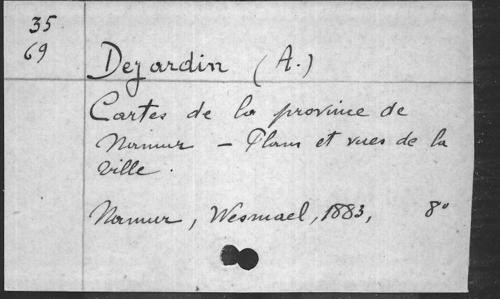 35
69
Dejardin (A.)
Cartes de la province de
Namur - Plans et vues de la
ville.
Namur, Wesmael, 1883, 8°